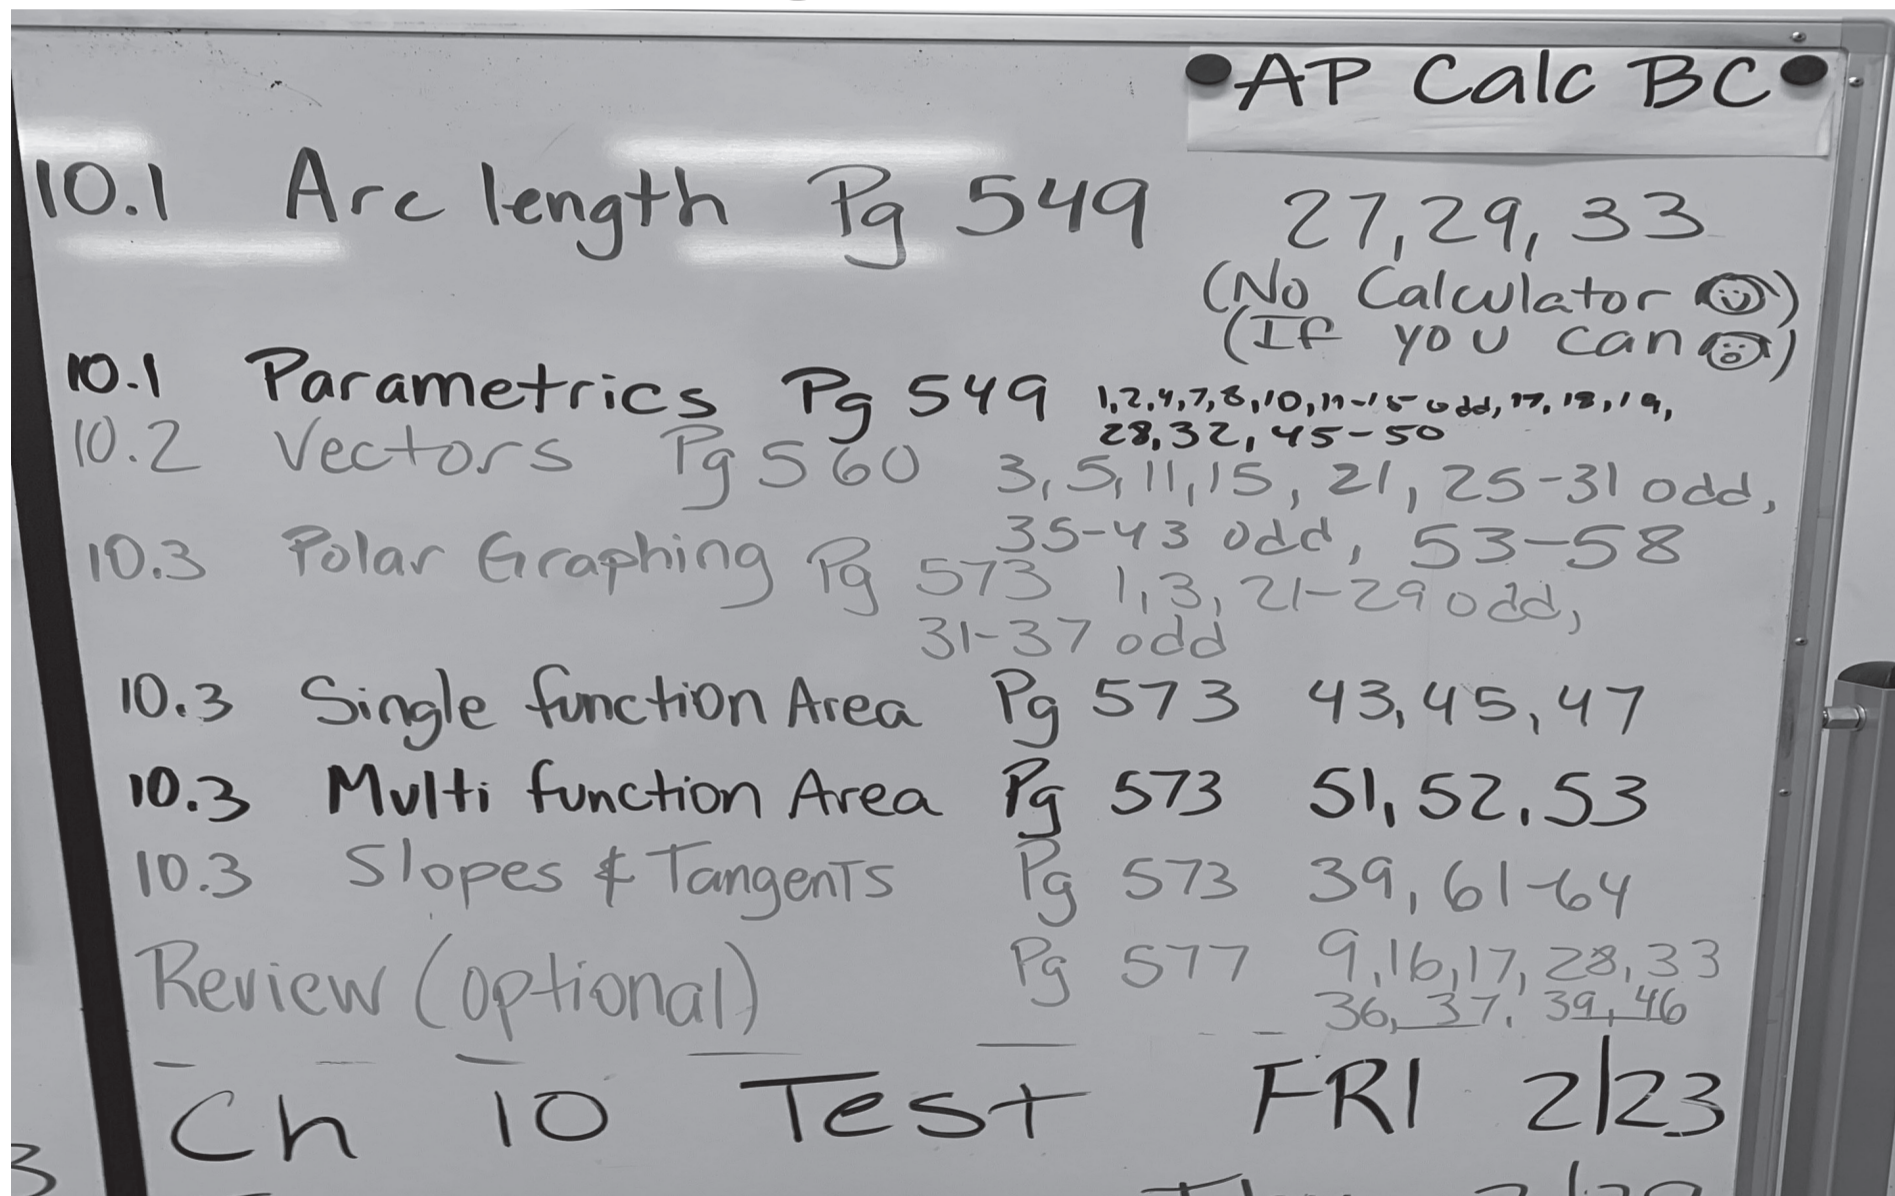 AP Calc BC
10.1 Arc length Pg 549 27, 29, 33
(No Calculator)
(If you can)
10.1 Parametrics Pg 549 1, 2, 4, 7, 8, 10, 11-15 odd, 17, 18, 19,
28, 32, 45-50
10.2 Vectors Pg 560 3, 5, 11, 15, 21, 25-31 odd,
35-43 odd, 53-58
10.3 Polar Graphing Pg 573 1, 3, 21-29 odd,
31-37 odd
10.3 Single function Area Pg 573 43, 45, 47
10.3 Multi function Area Pg 573 51, 52, 53
10.3 Slopes & Tangents Pg 573 39, 61-64
Review (optional) Pg 577 9, 16, 17, 28, 33
36, 37, 39, 46
Ch 10 Test FRI 2/23
3